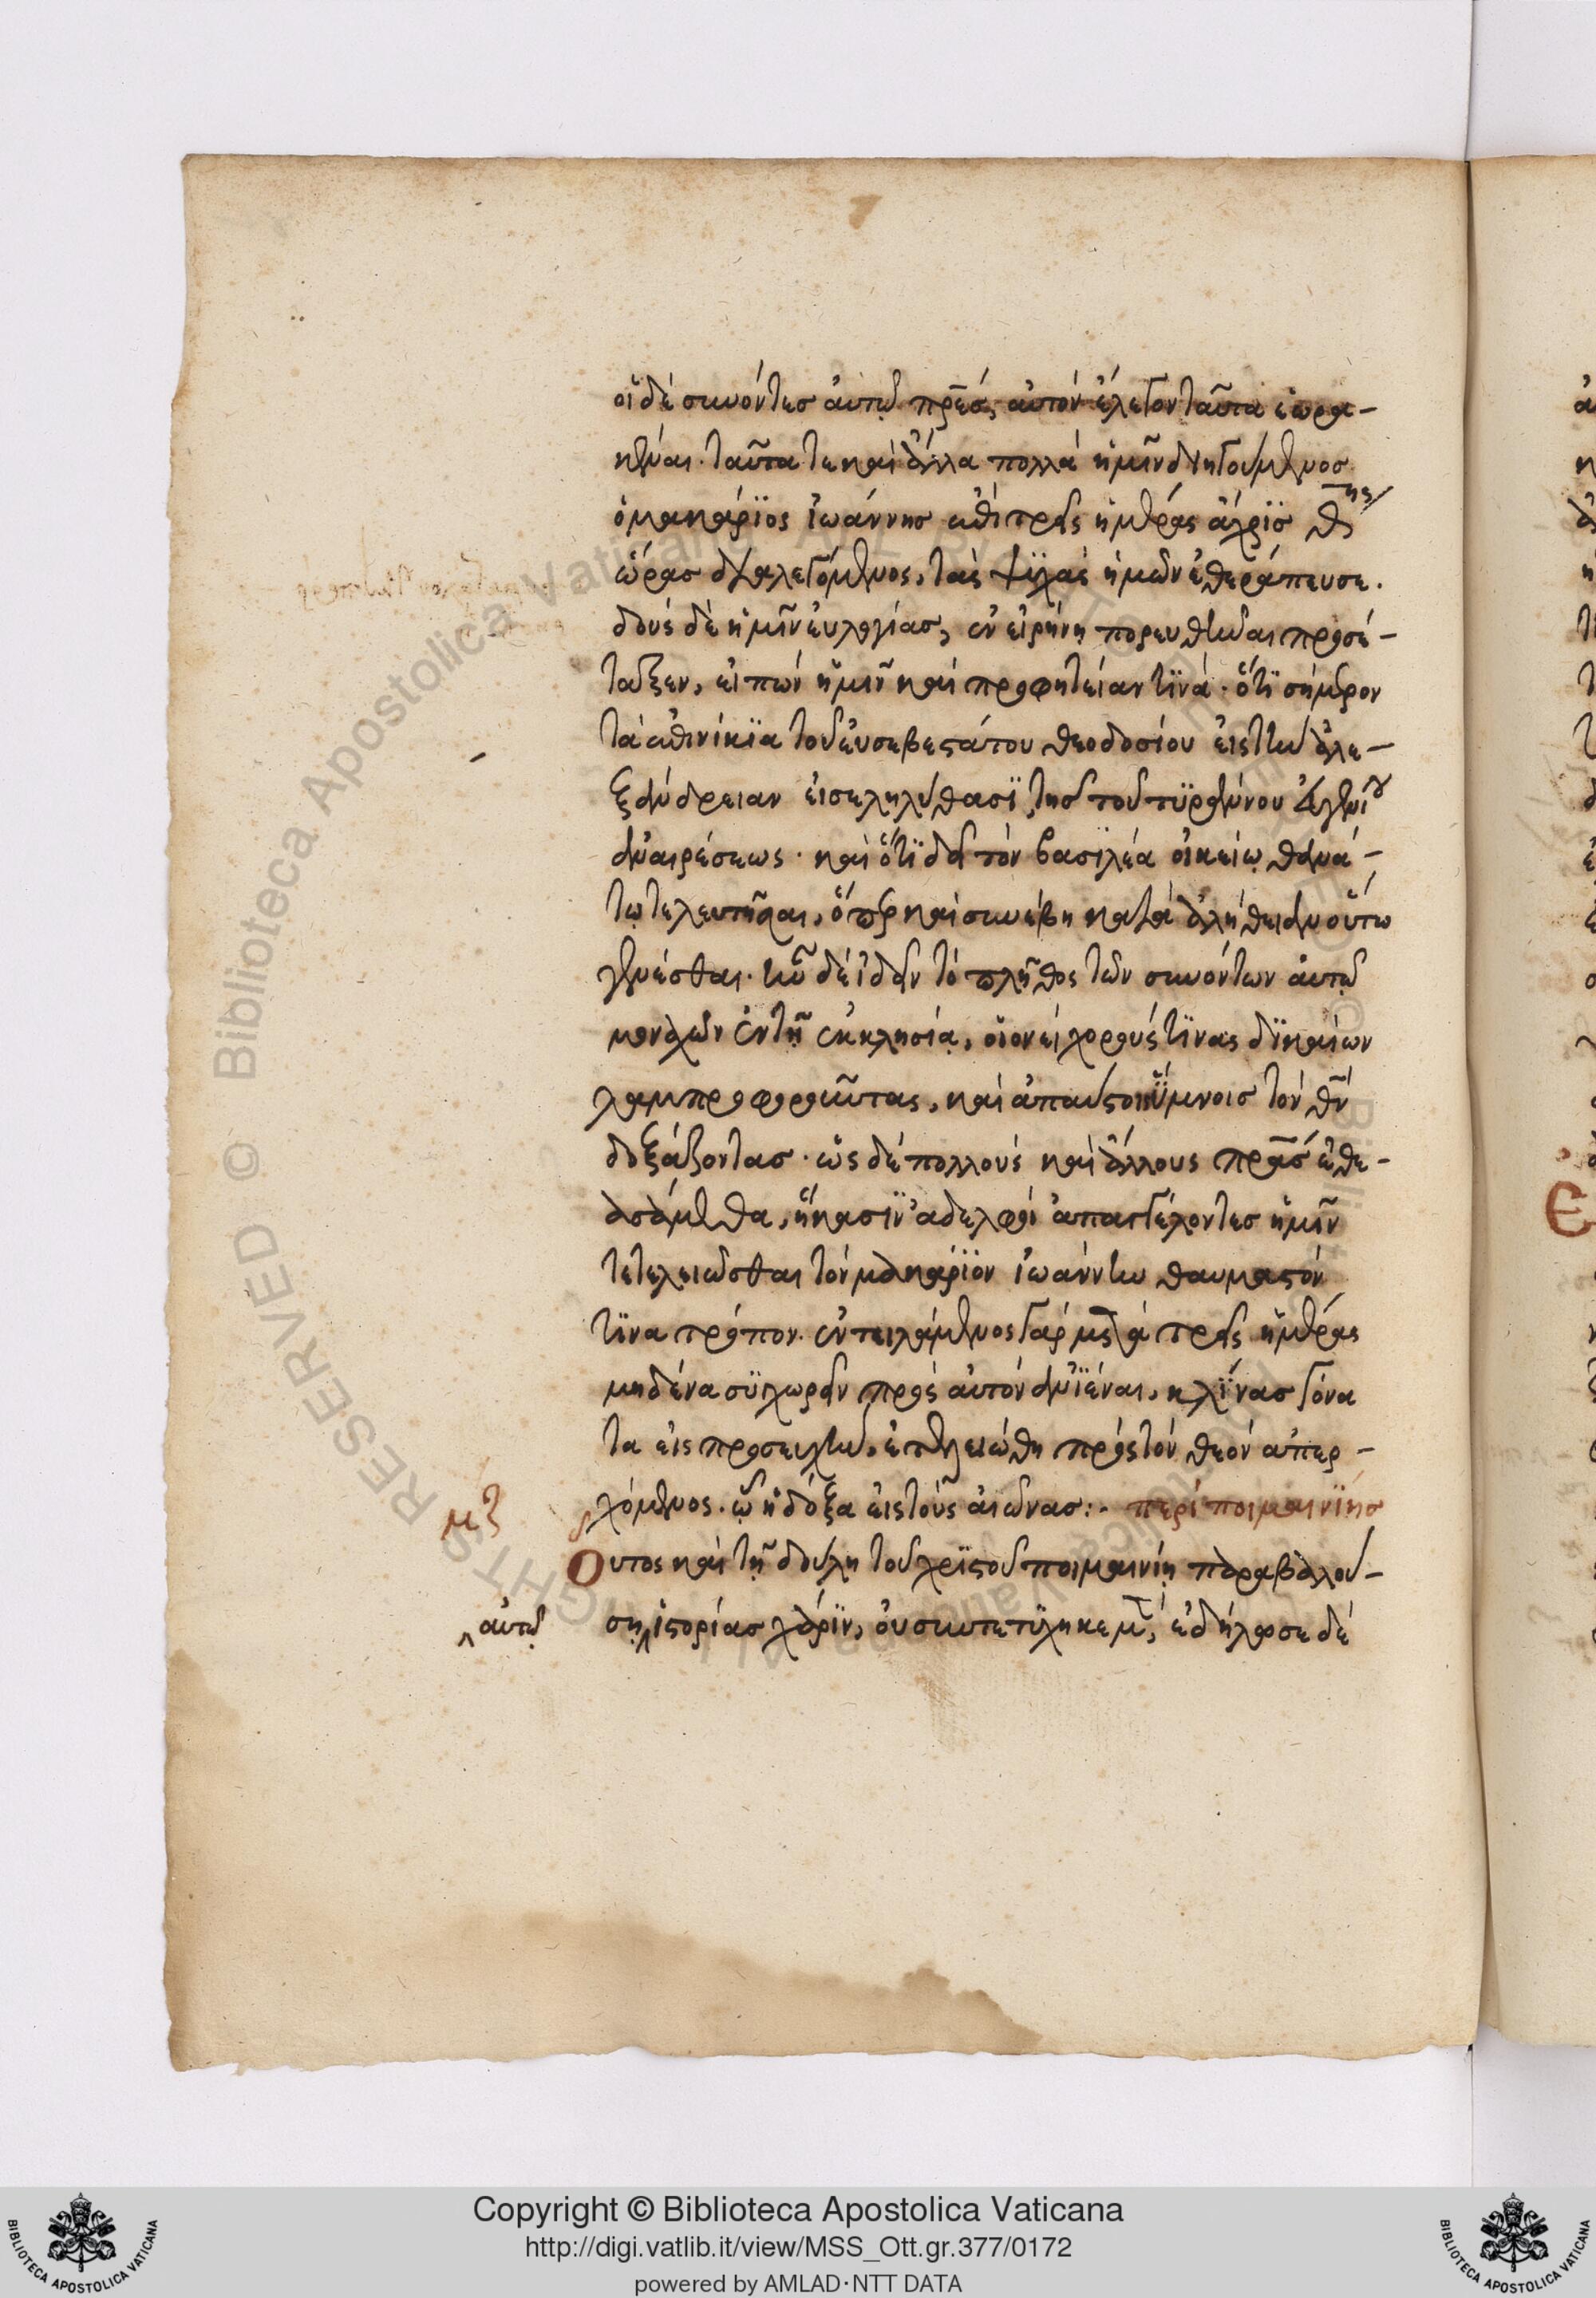 οἱ δὲ συνόντες αὐτῷ πρ̅ες, αὐτὸν ἔλεγον ταῦτα ἑωρα-
κέναι. ταῦτά τε καὶ ἄλλα πολλὰ ἡμῖν διηγούμενος
ὁ μακάριος ἰωάννης ἐπὶ τρεῖς ἡμέρας ἄχρις θ̅ης
ὥρας διαλεγόμενος, τὰς ψϋχὰς ἡμῶν ἐθεράπευσε.
δοὺς δὲ ἡμῖν εὐλογίας, ἐν εἰρήνῃ πορευθῆναι προσέ-
ταξεν, εἰπὼν ἡμῖν καὶ προφητείαν τϊνά. ὅτϊ σήμερον
τὰ ἐπινίκϊα τοῦ εὐσεβεστάτου θεοδοσίου εἰς τὴν ἀλε-
ξάνδρειαν εἰσεληλύθασϊ, τῆς τοῦ τϋράννου εὐγενίου
ἀναιρέσεως. καὶ ὅτϊ δεῖ τὸν βασϊλέα οἰκείῳ θανά-
τῳ τελευτῆσαι, ὅπερ καὶ συνέβη κατὰ ἀλήθειαν οὕτω
γενέσθαι. ἦν δὲ ἰδεῖν τὸ πλῆθος τῶν συνόντων αὐτῷ
μοναχῶν ἐν τῇ ἐκκλησίᾳ, οἱονεὶ χορούς τϊνας δϊκαίων
λαμπροφοροῦντας, καὶ ἀπαύστοις ὕμνοις τὸν θ̅ν
δοξάζοντας. ὡς δὲ πολλοὺς καὶ ἄλλους πρ̅ας ἐθε-
ασάμεθα, ἥκασϊν ἀδελφοὶ ἀπαγγέλοντες ἡμῖν
τετελειῶσθαι τὸν μακάρϊον ἰωάννην θαυμαστόν
τϊνα τρόπον. ἐντειλάμενος γὰρ μετὰ τρεῖς ἡμέρας
μηδένα σϋγχωρεῖν πρὸς αὐτὸν ἀνϊέναι, κλϊνας γόνα
τα εἰς προσευχὴν, ἐτελειώθη πρὸς τὸν θεὸν ἀπερ-
χόμενος. ᾧ ἡ δόξα εἰς τοὺς αἰῶνας:. περὶ ποιμαινϊης
μζ
Ουτος καὶ τῇ δούλῃ τοῦ χρϊστοῦ ποιμαινίῃ παραβαλού-
σῃ ἱστορίας χάρϊν, οὐ συντετϋχηκε μ̅, ἐδήλωσε δὲ
αὐτῷ